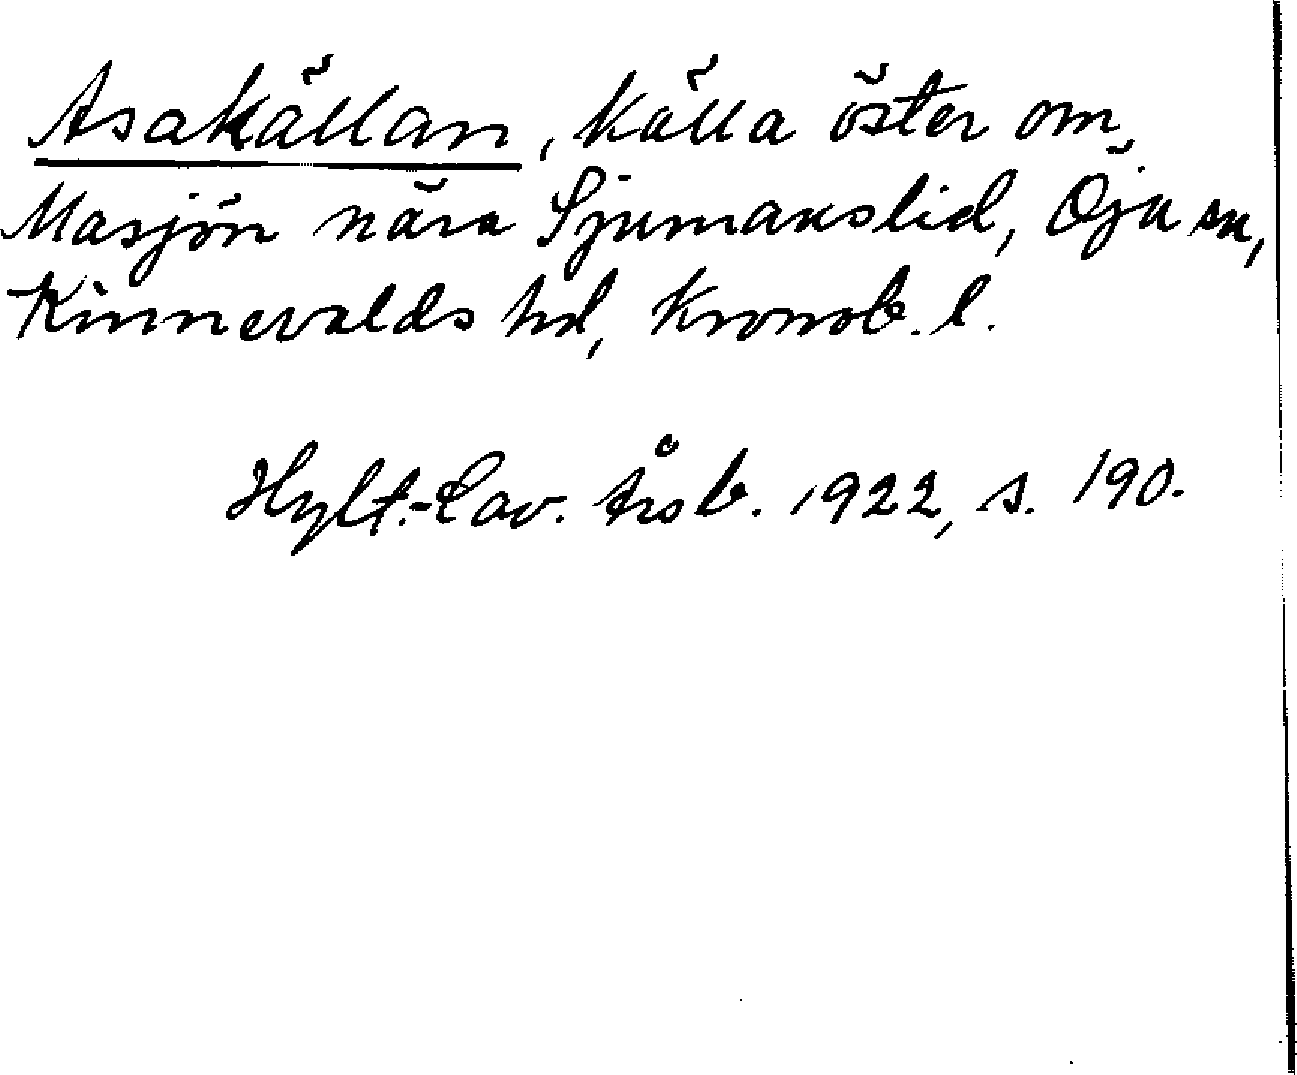 Asakällan, källa öster om
Masjön nära Sjumanslid, Öja sn,
Kinnevalds hd, Kronob. l.
Hylt.-Cav. årsb. 1922, s. 190.